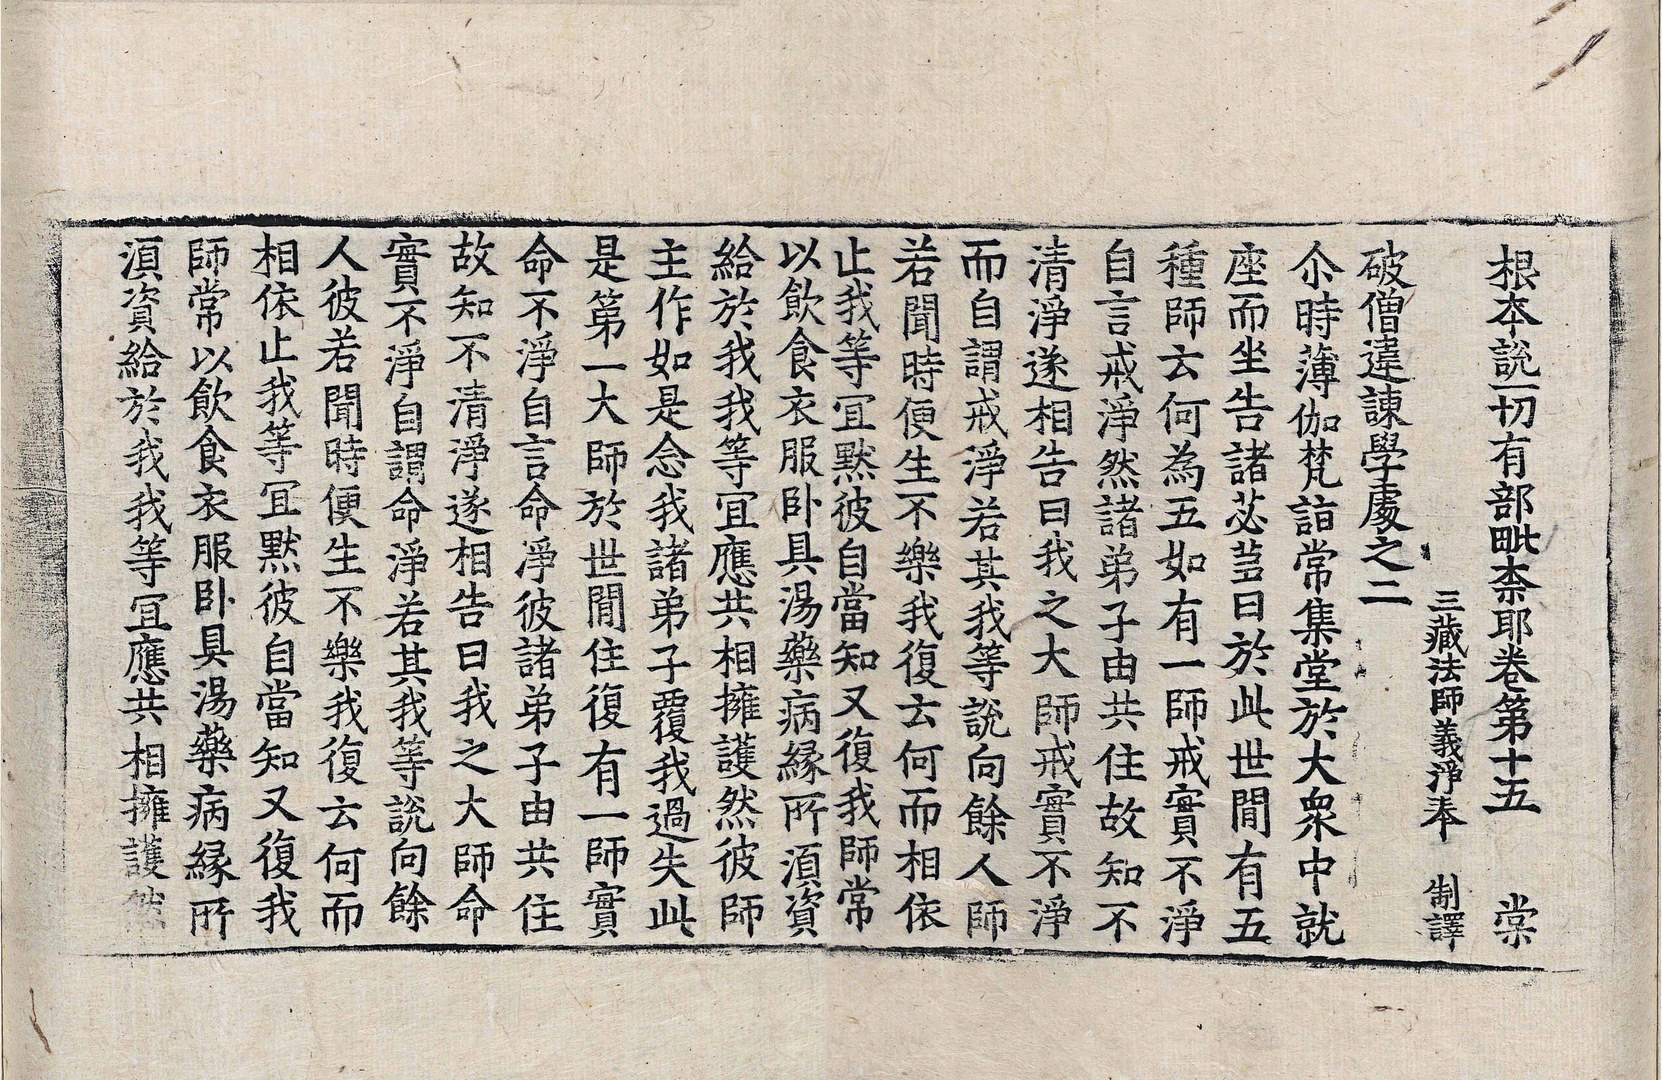 根本說一切有部毗柰耶卷第十五　棠
三藏法師義淨奉　制譯
破僧違諫學處之二
尒時薄伽梵詣常集堂於大眾中就
座而坐告諸苾芻曰於此世間有五
種師云何為五如有一師戒實不淨
自言戒淨然諸弟子由共住故知不
清淨遂相告曰我之大師戒實不淨
而自謂戒淨若其我等說向餘人師
若聞時便生不樂我復云何而相依
止我等冝默彼自當知又復我師常
以飲食衣服卧具湯藥病緣所湏資
給於我我等冝應共相擁護然彼師
主作如是念我諸弟子覆我過失此
是第一大師於世間住復有一師實
命不淨自言命淨彼諸弟子由共住
故知不清淨遂相告曰我之大師命
實不淨自謂命淨若其我等說向餘
人彼若聞時便生不樂我復云何而
相依止我等冝默彼自當知又復我
師常以飲食衣服卧具湯藥病緣所
湏資給於我我等冝應共相擁護然